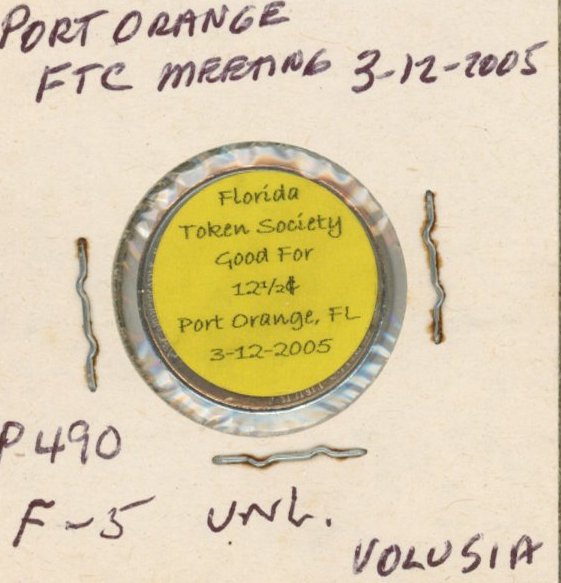 PORT ORANGE
FTC MEETING 3-12-2005
Florida
Token Society
Good For
12½¢
Port Orange, FL
3-12-2005
P490
F-5 UNL.
VOLUSIA